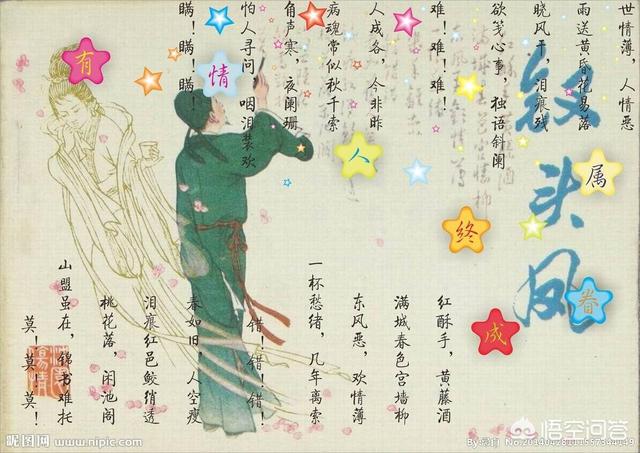 钗头凤
世情薄，人情恶
雨送黄昏花易落
晓风干，泪痕残
欲笺心事，独语斜阑
难！难！难！
人成各，今非昨
病魂常似秋千索
角声寒，夜阑珊
怕人寻问，咽泪装欢
瞒！瞒！瞒！
红酥手，黄藤酒
满城春色宫墙柳
东风恶，欢情薄
一杯愁绪，几年离索
错！错！错！
春如旧，人空瘦
泪痕红邑鲛绡透
桃花落 闲池阁
山盟虽在，锦书难托
莫！莫！莫！
有情人终成眷属
昵图网 www.nipic.com
悟空问答